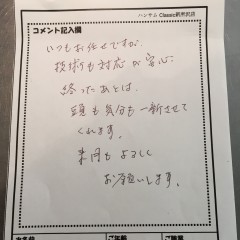 ハンサム Classic新所沢店
コメント記入欄
いつもお任せですが、
技術も対応が安心
終ったあとは、
頭も気分も一新させて
くれます。
来月もよろしく
お願いします。
お名前
ご年齢
ご職業